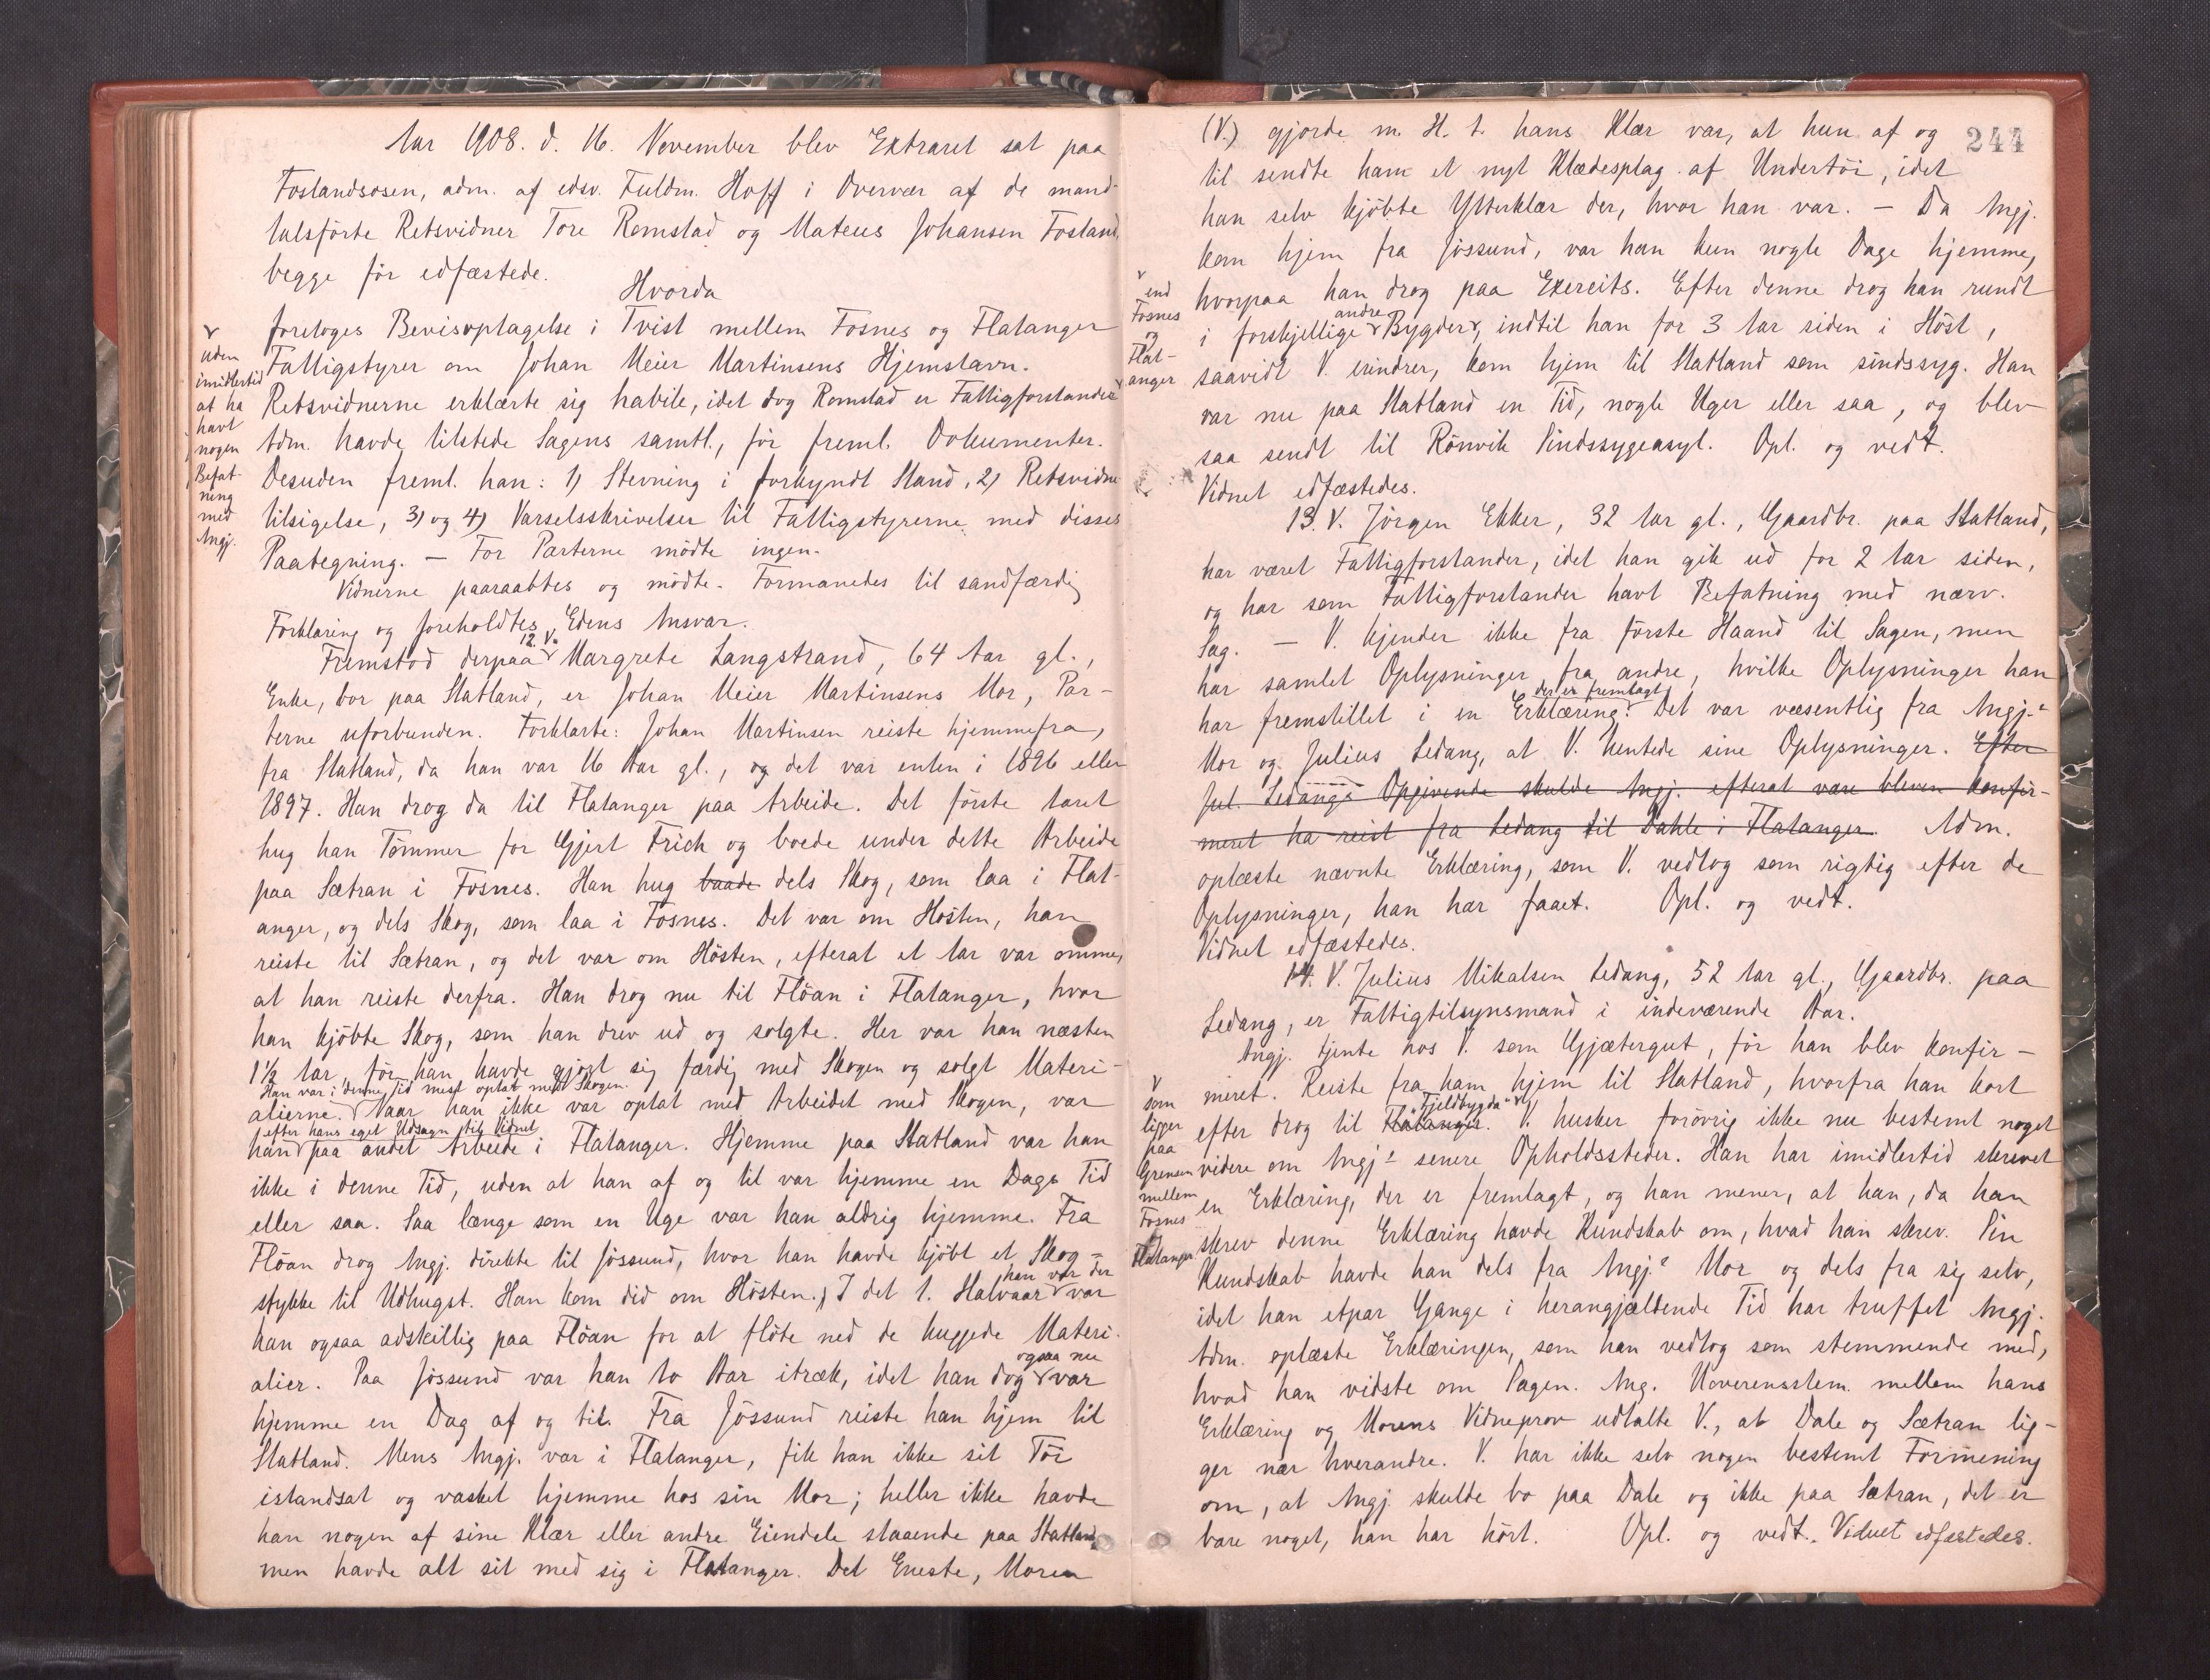 Aar 1908. d. 16. November blev Extraret sat paa
Foslandsosen, adm. af edsv. Fuldm. Hoff i Overvær af de mand-
talsförte Retsvidner Tore Romstad og Mateus Johansen Fosland,
begge för edfæstede.
Hvorda
foretoges Bevisoptagelse i Tvist mellem Fosnes og Flatanger
Fattigstyrer om Johan Meier Martinsens Hjemstavn.
Retsvidnerne erklærte sig habile, idet dog Romstad er Fattigforstander
uden
imidlertid
at ha
havt
nogen
Befat-
ning
med
Angj.
Adm. havde tilstede Sagens samtl., för freml. Dokumenter.
Desuden freml. han: 1) Stevning i forkyndt Stand, 2) Retsvidne
tilsigelse, 3) og 4) Varselsskrivelser til Fattigstyrerne med disses
Paategning. — For Parterne mödte ingen.
Vidnerne paaraabtes og mödte. Formanedes til sandfærdig
Forklaring og foreholdtes Edens Ansvar.
12. V.
Fremstod derpaa Margrete Langstrand, 64 Aar gl.,
Enke, bor paa Statland, er Johan Meier Martinsens Mor, Par-
terne uforbunden. Forklarte: Johan Martinsen reiste hjemmefra,
fra Statland, da han var 16 Aar gl., og det var enten i 1896 eller
1897. Han drog da til Flatanger paa Arbeide. Det förste Aaret
hug han Tömmer for Gjert Frich og boede under dette Arbeide
paa Sætran i Fosnes. Han hug baade dels Skog, som laa i Flat-
anger, og dels Skog, som laa i Fosnes. Det var om Hösten, han
reiste til Sætran, og det var om Hösten, efterat et Aar var omme,
at han reiste derfra. Han drog nu til Flöan i Flatanger, hvor
han kjöbte Skog, som han drev ud og solgte. Her var han næsten
1½ Aar, för han havde gjort sig færdig med Skogen og solgt Materi-
Han var i denne Tid mest optat med Skogen.
alierne. Naar han ikke var optat med Arbeidet med Skogen, var
efter hans eget Udsagn til Vidnet
han paa andet Arbeide i Flatanger. Hjemme paa Statland var han
ikke i denne Tid, uden at han af og til var hjemme en Dags Tid
eller saa. Saa længe som en Uge var han aldrig hjemme. Fra
Flöan drog Angj. direkte til Jössund, hvor han havde kjöbt et Skog-
stykke til Udhugst. Han kom did om Hösten. I det 1. Halvaar han var der var
han ogsaa adskillig paa Flöan for at flöte ned de huggede Materi-
alier. Paa Jössund var han to Aar itræk, idet han dog ogsaa nu var
hjemme en Dag af og til. Fra Jössund reiste han hjem til
Statland. Mens Angj. var i Flatanger, fik han ikke sit Töi
istandsat og vasket hjemme hos sin Mor; heller ikke havde
han nogen af sine Klær eller andre Eiendele staaende paa Statland,
men havde alt sit med sig i Flatanger. Det Eneste, Moren
244
(V.) gjorde m. H. t. hans Klær var, at hun af og
til sendte ham et nyt Klædesplag af Undertöi, idet
han selv kjöbte Ytterklær der, hvor han var. — Da Angj.
kom hjem fra Jössund, var han kun nogle Dage hjemme,
hvorpaa han drog paa Exercits. Efter denne drog han rundt
i forskjellige andre Bygder, indtil han for 3 Aar siden i Höst,
end
Fosnes
og
Flat-
anger
saavidt V. erindrer, kom hjem til Statland som sindssyg. Han
var nu paa Statland en Tid, nogle Uger eller saa, og blev
saa sendt til Rönvik Sindssygeasyl. Opl. og vedt.
Vidnet edfæstedes.
13. V. Jörgen Ekker, 32 Aar gl., Gaardbr. paa Statland,
har været Fattigforstander, idet han gik ud for 2 Aar siden,
og har som Fattigforstander havt Befatning med nærv.
Sag. — V. kjender ikke fra förste Haand til Sagen, men
har samlet Oplysninger fra andre, hvilke Oplysninger han
har fremstillet i en Erklæring der er fremlagt. Det var væsentlig fra Angj.s
Mor og Julius Ledang, at V. hentede sine Oplysninger. Efter
Jul. Ledangs Opgivende skulde Angj. efterat være bleven konfir-
meret ha reist fra Ledang til Dahle i Flatanger. Adm.
oplæste nævnte Erklæring, som V. vedtog som rigtig efter de
Oplysninger, han har faaet. Opl. og vedt.
Vidnet edfæstedes.
14. V. Julius Mikalsen Ledang, 52 Aar gl., Gaardbr. paa
Ledang, er Fattigtilsynsmand i indeværende Aar.
Angj. tjente hos V. som Gjætergut, för han blev konfir-
meret. Reiste fra ham hjem til Statland, hvorfra han kort
efter drog til Flatanger "Fjeldbygda". V. husker forövrig ikke nu bestemt noget
som
ligger
paa
Grensen
mellem
Fosnes
og
Flatanger
videre om Angj.s senere Opholdssteder. Han har imidlertid skrevet
en Erklæring, der er fremlagt, og han mener, at han, da han
skrev denne Erklæring havde Kundskab om, hvad han skrev. Sin
Kundskab havde han dels fra Angj.s Mor og dels fra sig selv,
idet han etpar Gange i herangjældende Tid har truffet Angj.
Adm. oplæste Erklæringen, som han vedtog som stemmende med,
hvad han vidste om Sagen. Ang. Uoverensstem. mellem hans
Erklæring og Morens Vidneprov udtalte V., at Dale og Sætran lig-
ger nær hverandre. V. har ikke selv nogen bestemt Formening
om, at Angj. skulde bo paa Dale og ikke paa Sætran, det er
bare noget, han har hört. Opl. og vedt. Vidnet edfæstedes.